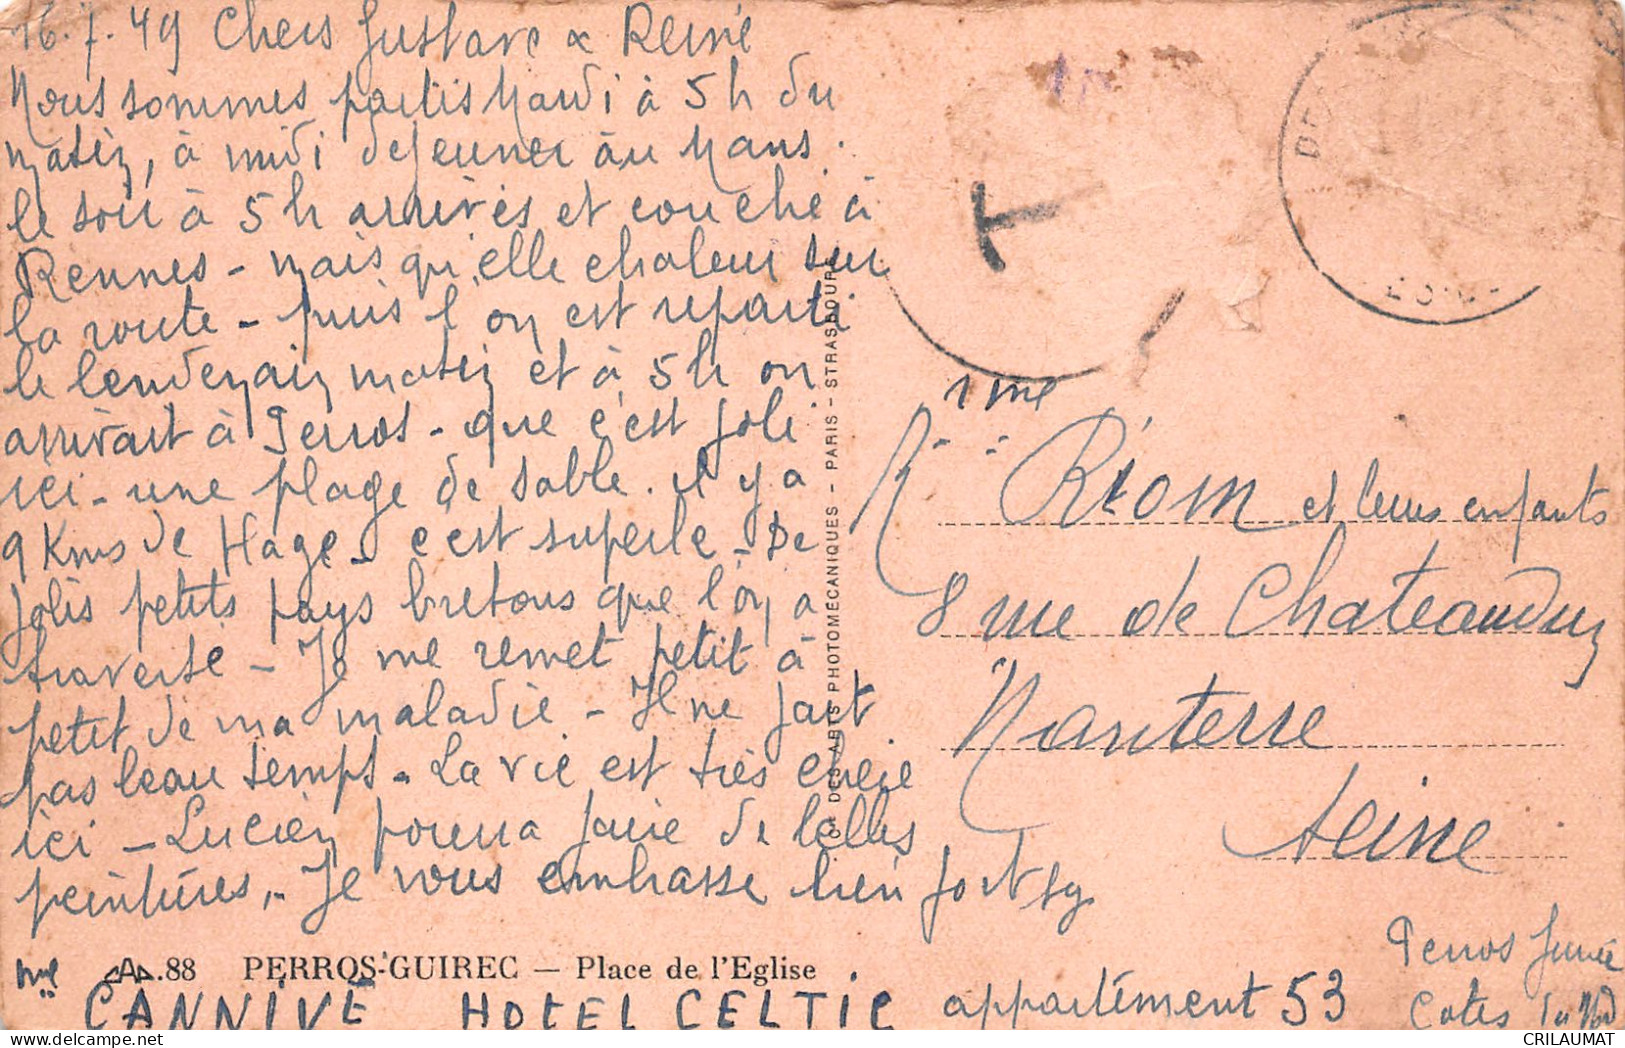 16.7.49 Chers Gustave & Reine
Nous sommes partis Mardi à 5h du
matin, à midi dejeuner au Mans.
le soir à 5h arrivés et couché à
Rennes - mais qu'elle chaleur sur
la route - puis l'on est reparti
le lendemain matin et à 5h on
arrivait à Perros - que c'est joli
ici - une plage de sable. il y a
9 Kms de Plage - c'est superbe - De
jolis petits pays bretons que l'on a
traversé - Je me remet petit à
petit de ma maladie - Il ne fait
pas beau temps - La vie est très chère
ici - Lucien pourra faire de belles
peintures. - Je vous embrasse bien fort
88 PERROS-GUIREC — Place de l'Eglise
Mme CANNIVÉ HOTEL CELTIC appartément 53
Perros Guirec
Cotes du Nord
CIE DES ARTS PHOTOMÉCANIQUES - PARIS - STRASBOURG
T
Mme
Riom et leurs enfants
8 rue de Chateaudun
Nanterre
Seine
CRILAUMAT